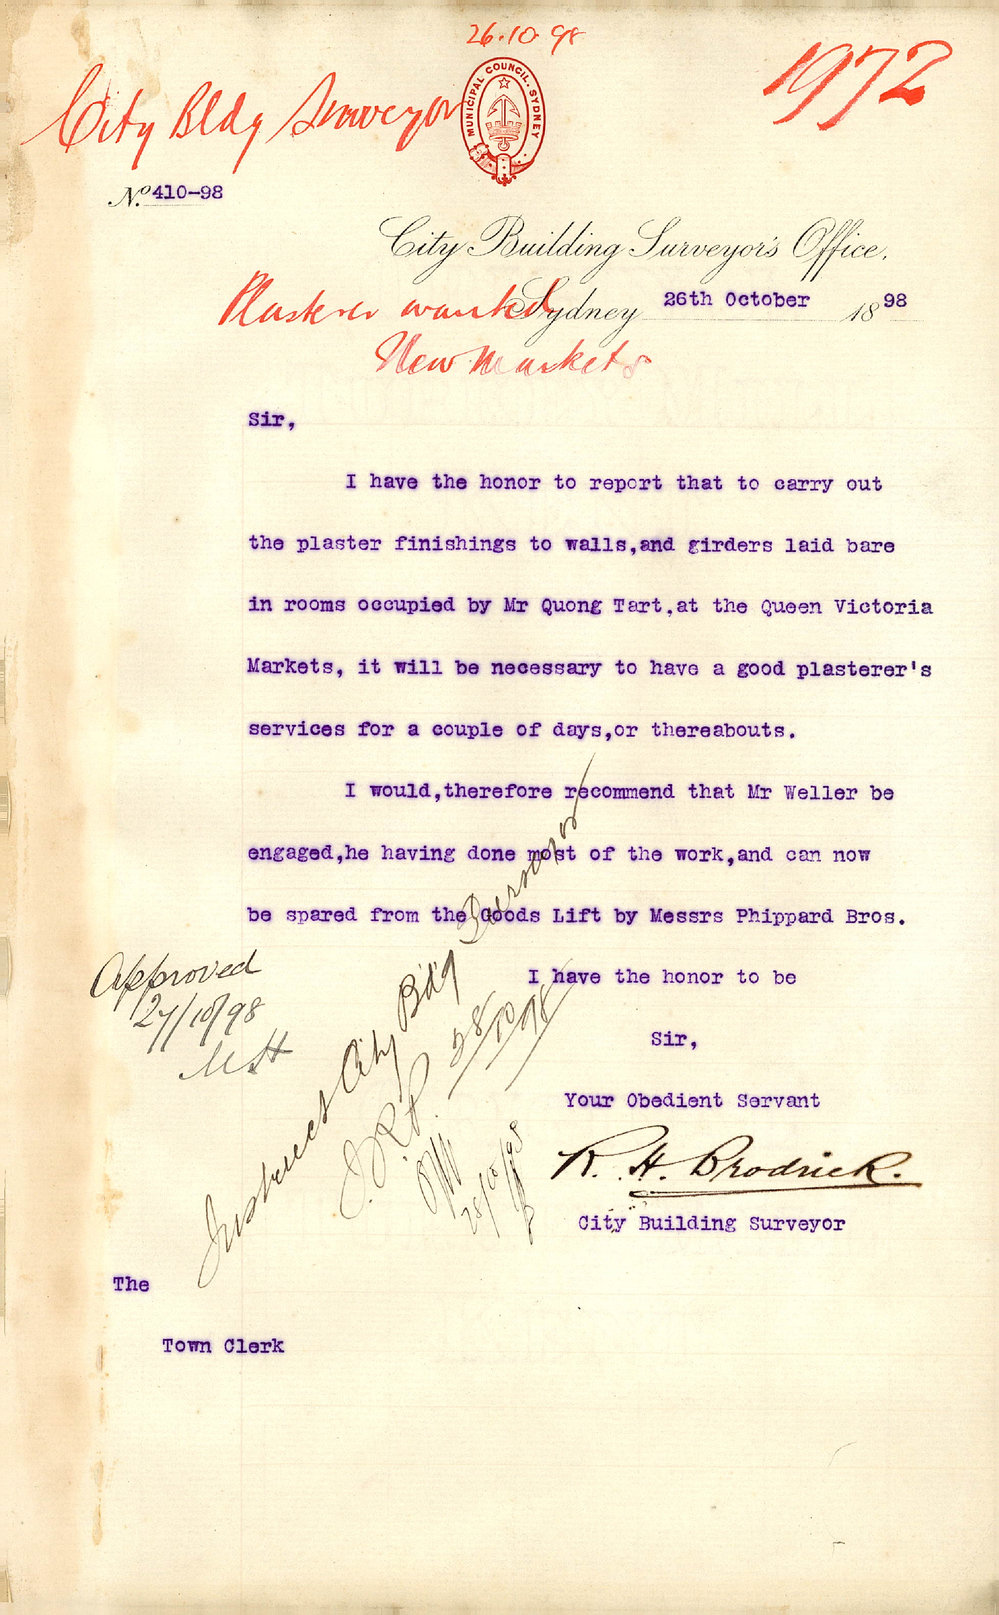 26.10.98
1972
City Bldg Surveyor
MUNICIPAL COUNCIL. SYDNEY
No. 410-98
City Building Surveyor's Office,
Sydney 26th October 1898
Plasterer wanted
New Markets
Sir,
I have the honor to report that to carry out
the plaster finishings to walls,and girders laid bare
in rooms occupied by Mr Quong Tart,at the Queen Victoria
Markets, it will be necessary to have a good plasterer's
services for a couple of days,or thereabouts.
I would,therefore recommend that Mr Weller be
engaged,he having done most of the work,and can now
be spared from the Goods Lift by Messrs Phippard Bros.
I have the honor to be
Sir,
Your Obedient Servant
R. H. Brodrick.
City Building Surveyor
Approved
27/10/98
Instruct City Bldg Surveyor
28/10/98
The
Town Clerk